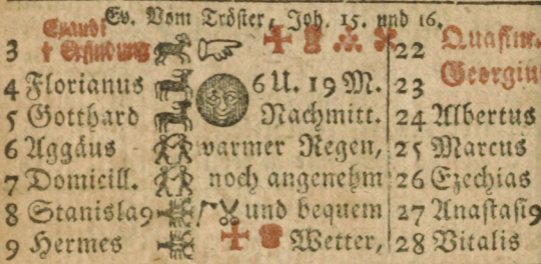 Ev. Vom Tröster, Joh. 15. und 16.
3 Exaudi † Erfindung 22 Quasim.
Georgiu
4 Florianus 6 U. 19 M. 23
5 Gotthard Nachmitt. 24 Albertus
6 Aggäus warmer Regen, 25 Marcus
7 Domicill. noch angenehm 26 Ezechias
8 Stanisla9 und bequem 27 Anastasi9
9 Hermes Wetter, 28 Vitalis